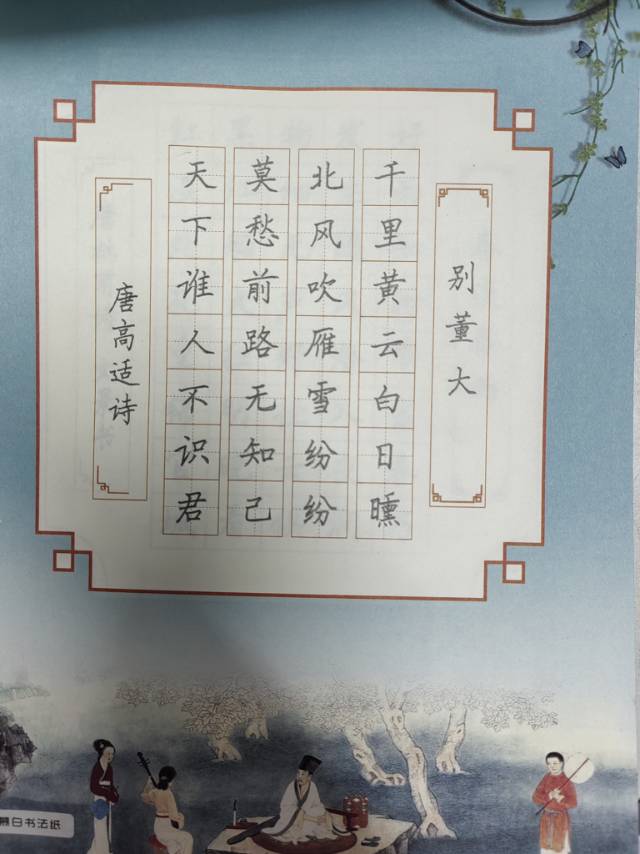 别董大
千里黄云白日曛
北风吹雁雪纷纷
莫愁前路无知己
天下谁人不识君
唐高适诗
慕白书法纸